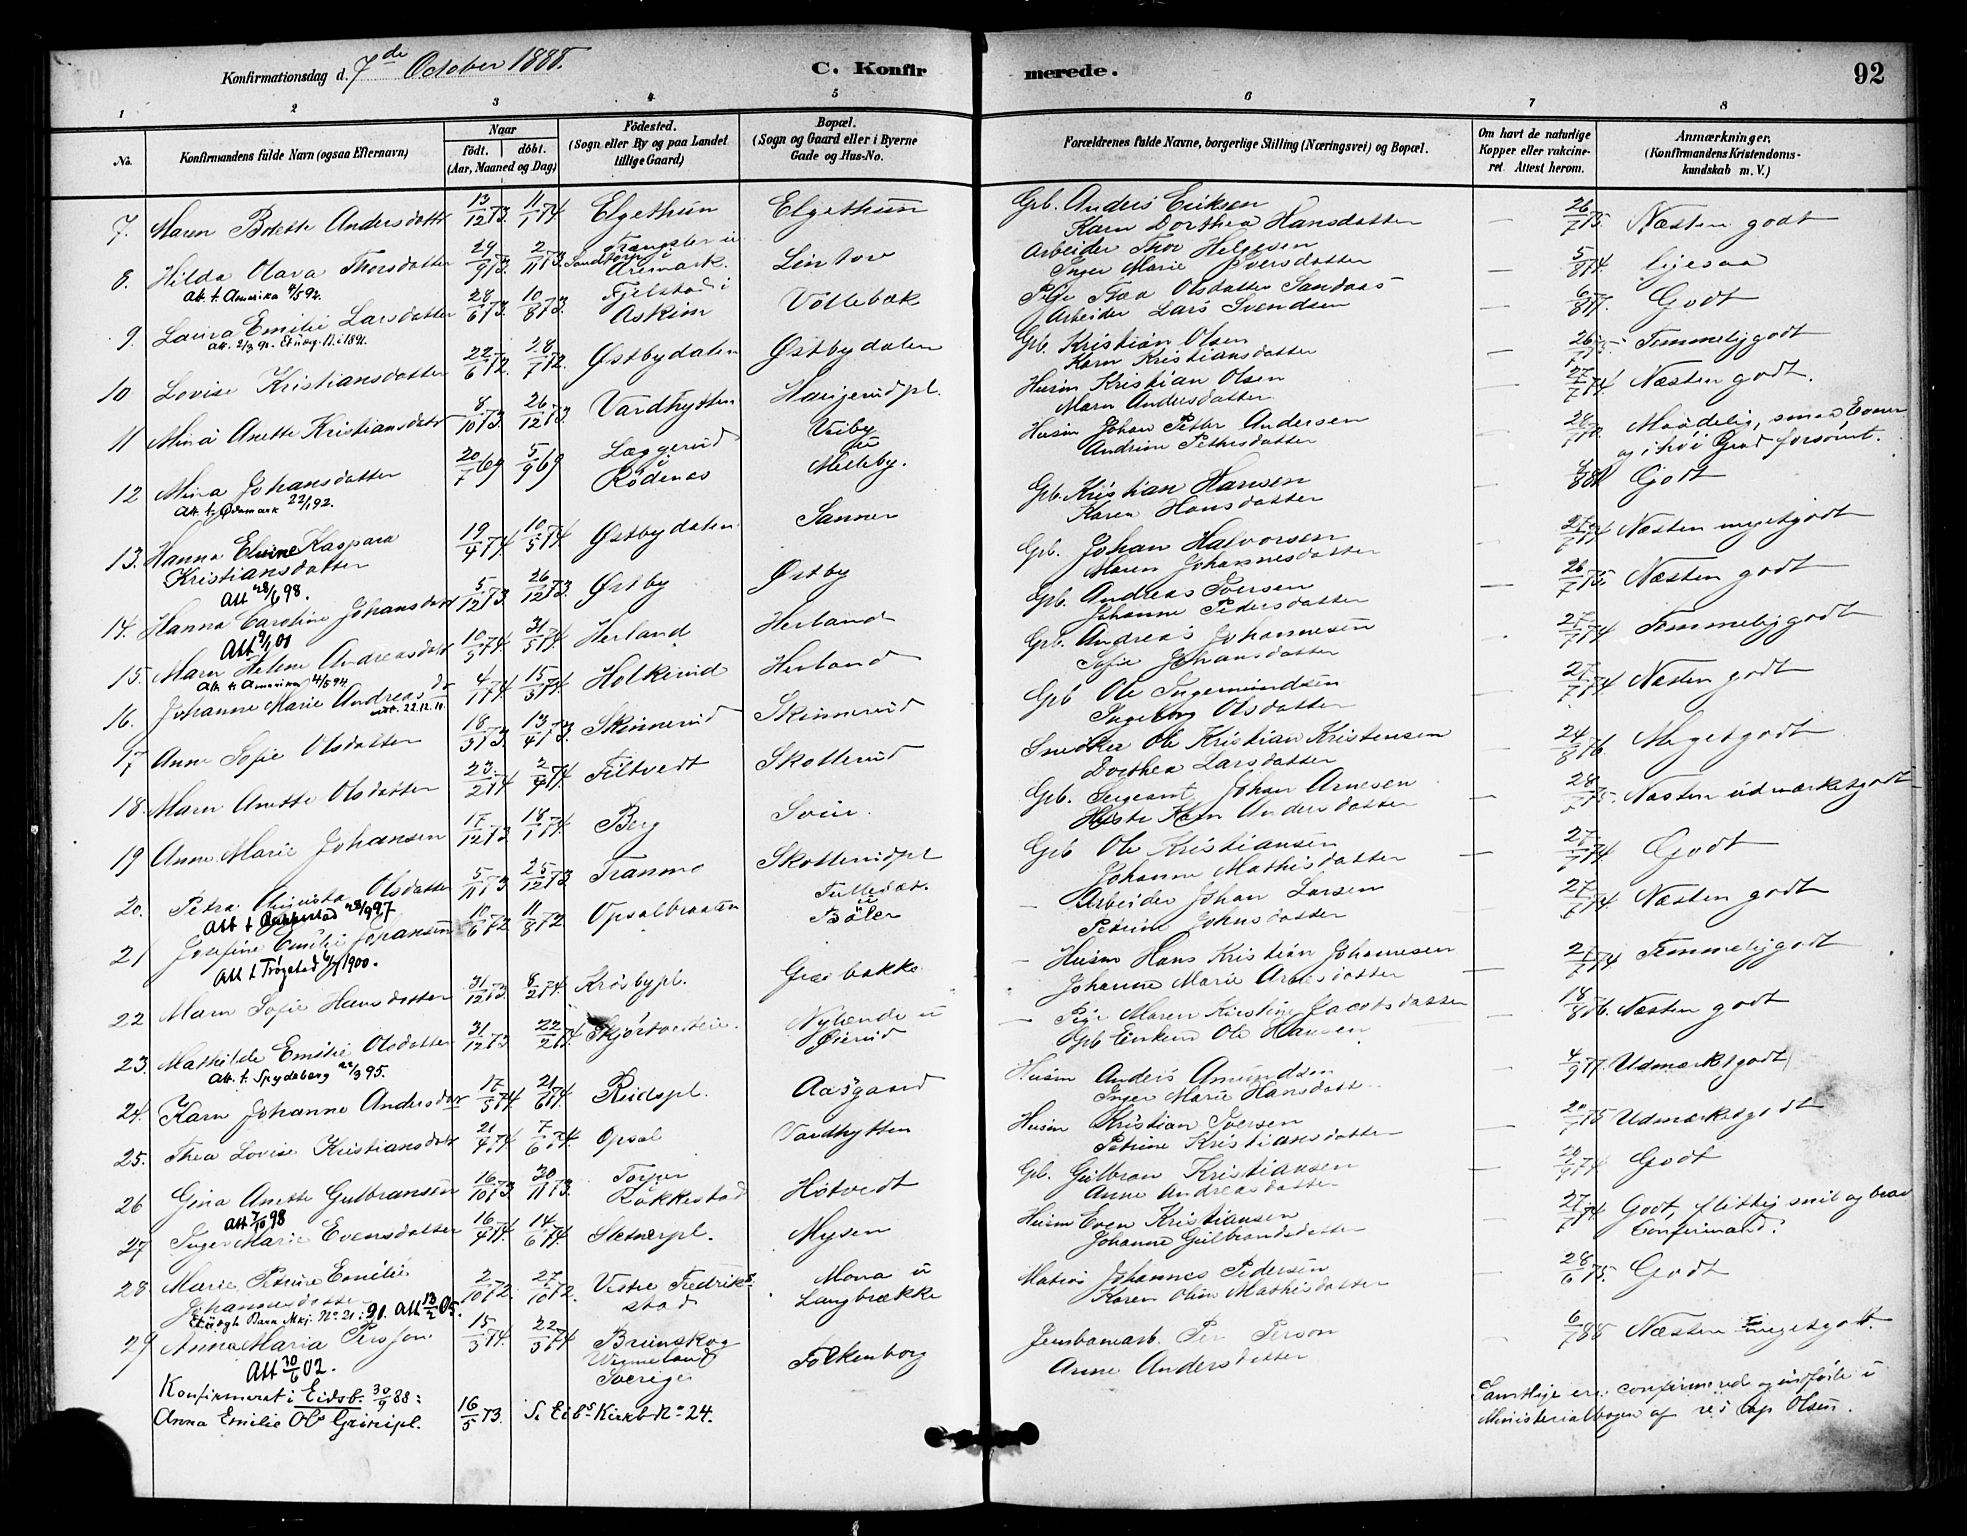 Konfirmationsdag d. 7de October 1888.
C. Konfirmerede.
92
1 2 3 4 5 6 7 8
No.
Konfirmandens fulde Navn (ogsaa Efternavn)
Naar
födt. döbt.
(Aar, Maaned og Dag)
Födested.
(Sogn eller By og paa Landet
tillige Gaard)
Bopæl.
(Sogn og Gaard eller i Byerne
Gade og Hus-No.
Forældrenes fulde Navne, borgerlige Stilling (Næringsvei) og Bopæl.
Om havt de naturlige
Kopper eller vakcine-
ret. Attest herom.
Anmærkninger.
(Konfirmandens Kristendoms-
kundskab m. V.)
7. Maren Bolette Andersdatter 13/12 73. 11/1 74 Elgethun Elgethun Gb. Anders Eriksen — 26/7 75. Næsten godt
Karn Dorthea Hansdatter
8. Hilda Olava Thorsdatter 29/9 73. 2/11 73. Aremark. Lintov Arbeider Thor Helgesen — 5/8 74. ligesaa
Att. t. Amerika 4/5 92. Inger Marie Iversdatter
9. Laura Emilie Larsdatter 28/6 73. 10/8 73. Fjelstad i Askim Vollebæk Pige Thea Olsdatter Sandaas — 6/8 77. Godt
Arbeider Lars Svendsen
10 Lovise Kristiansdatter 22/6 72. 28/7 72. Østbydalen Østbydalen Gb. Kristian Olsen — Temmelig godt
Karn Kristiansdatter
11 Mina Anette Kristiansdatr 8/10 73 26/12 73. Vardhytten Haugerudpl. Husm Kristian Olsen — 27/7 74 Næsten godt.
Maren Andersdatter
12 Mina Johansdatter 20/7 69 5/9 69 Læggerud i Rødenæs Viby u Melleby. Husm Johan Petter Andersen Maadelig, smaa Evner
Att. t. Ødemark 22/1 92. Andrine Pettersdatter og i høi Grad forsømt.
13. Hanna Elvine Kaspara 19/4 74 10/5 74. Østbydalen Sanner Gb. Kristian Hansen Godt
Kristiansdatter Karen Hansdatter
Att 28/6 98.
14. Hanna Caroline Johansdatr 5/12 73 26/12 73. Østby Østby Gb. Johan Halvorsen 27/7 74 Næsten megetgodt
Att 9/1 01 Maren Johannesdatter
15. Maren Helene Andreasdatr 10/5 74 31/5 74. Herland Herland Gb. Andreas Iversen — 26/7 75 Næsten godt
Att. t. Amerika 4/5 94 Johanne Pedersdatter
16. Johanne Marie Andreasdr 4/1 74 15/3 74. Holkerud Herland Gb. Andreas Johannesen 27/7 74 Temmelig godt
Sofie Johansdatter
17 Anne Sofie Olsdatter 18/3 73. 13/4 73. Skinnerud Skinnerud Gb Ole Ingemundsen — 27/7 74 Næsten godt
Ingeborg Olsdatter
18. Maren Anette Olsdatter 23/2 74 2/4 74. Filtvedt Skotterud Snedker Ole Kristian Kristensen — 24/8 76 Megetgodt
Dorthea Larsdatter
19 Anne Marie Johansen 17/12 73 18/1 74. Berg Svin. Gb. Sergeant Johan Arnesen — 28/7 75. Næsten udmærketgodt
Andersdatter
20. Petra Olsdatter 5/11 73 25/12 73 Tramme Skotterudpl Gb Ole Kristiansen — 27/7 74 Godt
Johanne Mathisdatter
21 Josefine Emilie Johansen 10/6 72 11/8 72. Opsalbraaten Bøler — Arbeider Johan Larsen 27/7 74 Næsten godt
Att t Trøgstad 1900. Petrine Johnsdatter
22 Maren Sofie Hansdatter 31/12 73. 8/2 74. Krosbypl. Græsbakke — Husm Hans Kristian Johannesen — 27/7 74 Temmelig godt
Johanne Marie
23. Mathilde Emilie Olsdatter 31/12 73 22/2 74. Nylænde u — Pige Maren Kirstine Jacobsdatter — 18/8 76. Næsten godt
Att. t. Spydeberg 22/3 95. Øierud Gb Enkem Ole Hansen
24. Karn Johanne Andersdatr 17/5 74. 21/6 74. Rudspl. Aasgaard Husm Anders Amundsen — 4/9 77. Udmærketgodt
Inger Marie Hansdatter
25. Thea Lovise Kristiansdatr 21/4 74. 7/6 74. Opsal Vardhytten Husm Kristian Iversen — Udmærketgodt
Petrine Kristiansdatter
26 Gina Anette Gulbransen 16/10 73 30/11 73. Rakkestad Hotvedt Gb. Gulbran Kristiansen — Godt
Att 7/10 98 Anne Andreasdatter
27 Inger Marie Evensdatter 16/4 74. 14/6 74. Mysen Husm Even Kristiansen — 27/7 74 Godt, flittig snil og brav
Johanne Gulbrandsdatter Confirmand.
28 Marie Petrine Emilie 2/10 72. 27/10 72. Vestre Fredrik- Mona u Matros Johannes Pedersen — 28/6 75. Godt
Johannesdatter stad Langbrække Karen Oline Mathisdatter
Att 13/2 05.
29 Anna Maria Persson 15/3 74. 22/3 74 Brunskog Folkenborg Jernbanearb. Per Person — 6/7 88 Næsten megetgodt.
Att 30/6 02. Vermeland Anne Andersdatter
Sverige
Konfirmeret i Eidsb. 30/9 88:
Anna Emilie Ols Grinipl. 16/5 73. Se Eidsb. Kirkeb. No 24.
Samtlige ere confirmerede og indførte i
Ministerialbogen af Olsen.